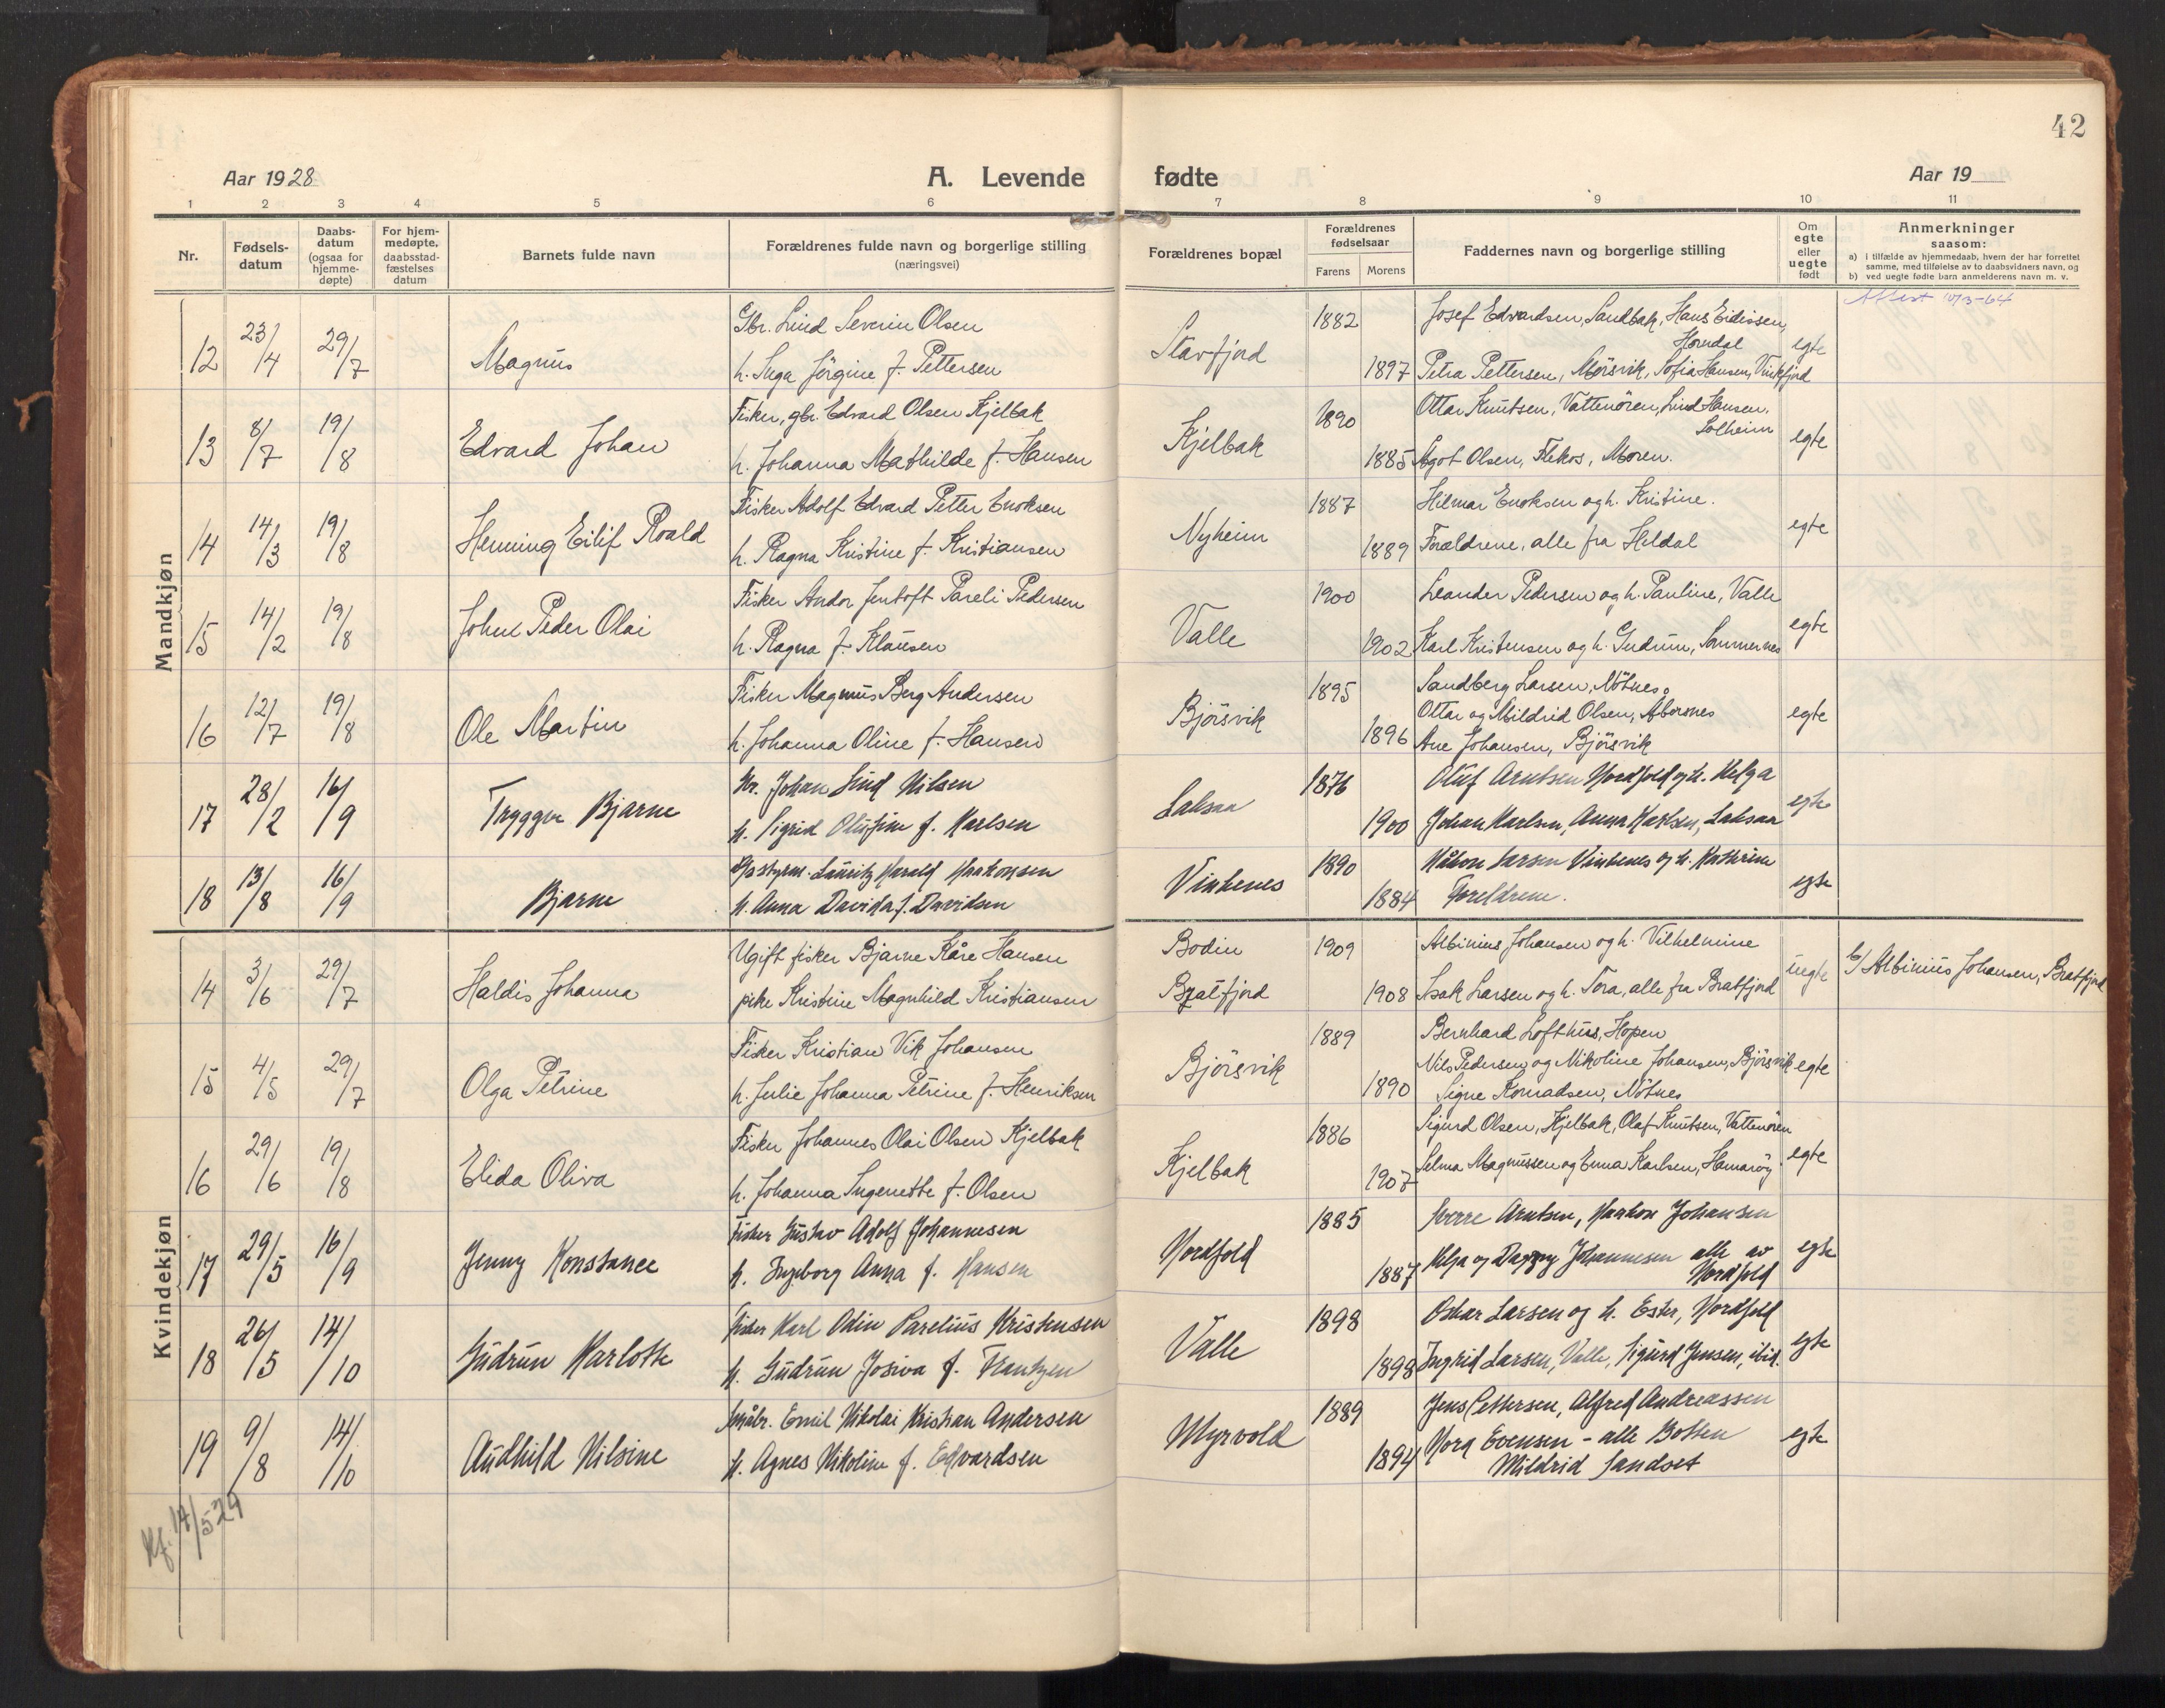 42
Aar 1928
A. Levende
fødte
Aar 19
1 2 3 4 5 6 7 8 9 10 11
Nr.
Fødsels-
datum
Daabs-
datum
(ogsaa for
hjemme-
døpte)
For hjem-
medøpte,
daabsstad-
fæstelses
datum
Barnets fulde navn
Forældrenes fulde navn og borgerlige stilling
(næringsvei)
Forældrenes bopæl
Forældrenes
fødselsaar
Farens Morens
Faddernes navn og borgerlige stilling
Om
egte
eller
uegte
født
Anmerkninger
saasom:
a) i tilfælde av hjemmedaab, hvem der har forrettet
samme, med tilføielse av to daabsvidners navn, og
b) ved uegte fødte barn anmelderens navn m. v.
Mandkjøn
12 23/4 29/7 Magnus
Gbr. Lind Severin Olsen
h. Inga Jörgine f. Pettersen
Stavfjord 1882 1897
Josef Edvardsen, Sandbak, Hans Eidissen,
Horndal
Petra Pettersen, Mörsvik, Sofia Hansen, Vinkfjord
egte
Attest 10/3-64
13 8/7 19/8 Edvard Johan
Fisker, gbr. Edvard Olsen Kjelbak
h. Johanna Mathilde f. Hansen
Kjelbak 1890 1885
Ottar Knutsen, Vattenören, Lind Hansen,
Solheim
Agot Olsen, Flekos, Moren.
egte
14 14/3 19/8 Henning Eilif Roald
Fisker Adolf Edvard Petter Enoksen
h. Ragna Kristine f. Kristiansen
Nyheim 1887 1889
Hilmar Enoksen og h. Kristine.
Forældrene, alle fra Hildal
egte
15 14/2 19/8 John Peder Olai
Fisker Andor Jentoft Pareli Pedersen
h. Ragna f. Klausen
Valle 1900 1902
Leander Pedersen og h. Pauline, Valle
Karl Kristensen og h. Gudrun, Sommernes
egte
16 12/7 19/8 Ole Martin
Fisker Magnus Berg Andersen
h. Johanna Oline f. Hansen
Björsvik 1895 1896
Sandberg Larsen, Nötnes.
Ottar og Mildrid Olsen, Abornes
Ane Johansen, Björsvik
egte
17 28/2 16/9 Tryggve Bjarne
Johan Lind Nilsen
h. Sigrid Olufine f. Karlsen
Laksaa 1876 1900
Oluf Arntsen Nordfold og h. Helga
Johan Karlsen, Anna Karlsen, Laksaa
egte
18 13/8 16/9 Bjarne
Lauritz Harald Haakonsen
h. Anna Davida f. Davidsen
Vinkenes 1890 1884
Håkon Larsen Vinkenes og h. Kathrine
Foreldrene.
egte
Kvindekjøn
14 3/6 29/7 Haldis Johanna
Ugift fisker Bjarne Kåre Hansen
pike Kristine Magnhild Kristiansen
Bodin
Bratfjord
1909 1908
Albinius Johansen og h. Vilhelmine
Isak Larsen og h. Tora, alle fra Bratfjord
uegte
b/ Albinius Johansen, Bratfjord
15 4/5 29/7 Olga Petrine
Fisker Kristian Vik Johansen
h. Julie Johanna Petrine f. Henriksen
Björsvik 1889 1890
Bernhard Lofthus, Hopen
Nils Pedersen og Nikoline Johansen, Björsvik
Signe Konradsen, Nötnes
egte
16 29/6 19/8 Elida Oliva
Fisker Johannes Olai Olsen Kjelbak
h. Johanna Ingenette f. Olsen
Kjelbak 1886 1907
Sigurd Olsen, Kjelbak, Olaf Knutsen, Vattenören
Selma Magnussen og Enna Karlsen, Hamaröy
egte
17 29/5 16/9 Jenny Konstance
Fisker Gustav Adolf Johannesen
h. Ingeborg Anna f. Hansen
Nordfold 1885 1887
Sverre Arntsen, Haakon Johansen
Helga og Dagny Johannesen alle av
Nordfold
egte
18 26/5 14/10 Gudrun Karlotte
Fisker Karl Odin Parelius Kristensen
h. Gudrun Josiva f. Frantzen
Valle 1898 1898
Oskar Larsen og h. Ester, Nordfold
Ingrid Larsen, Valle, Sigurd Jensen, ibid.
egte
19 9/8 14/10 Audhild Nilsine
Småbr. Emil Nikolai Kristian Andersen
h. Agnes Nikoline f. Edvardsen
Myrvold 1889 1894
Jens Pettersen, Alfred Andreassen
Nora Evensen - alle Botten
Mildrid Sandset
egte
Kf. 14/5 29